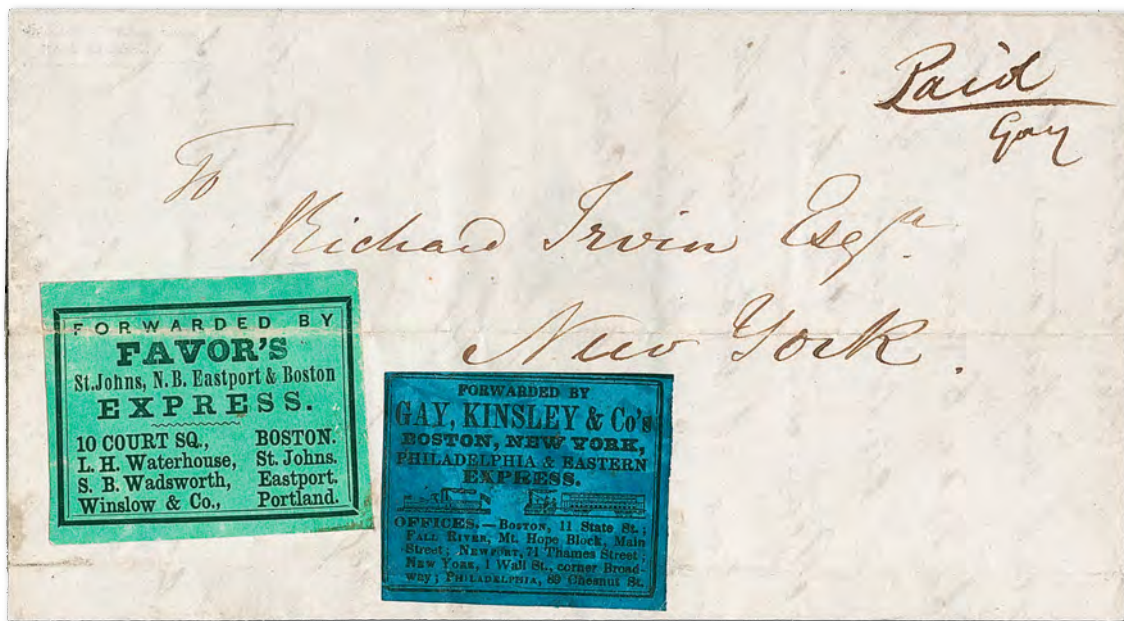 Paid
Gay
To
Richard Irvin Esqr.
New York.
FORWARDED BY
FAVOR'S
St. Johns, N. B. Eastport & Boston
EXPRESS.
10 COURT SQ., BOSTON.
L. H. Waterhouse, St. Johns.
S. B. Wadsworth, Eastport.
Winslow & Co., Portland.
FORWARDED BY
GAY, KINSLEY & Co's
BOSTON, NEW YORK,
PHILADELPHIA & EASTERN
EXPRESS.
OFFICES.—BOSTON, 11 State St.;
FALL RIVER, Mt. Hope Block, Main
Street; NEWPORT, 71 Thames Street;
NEW YORK, 1 Wall St., corner Broad-
way; PHILADELPHIA, 89 Chesnut St.